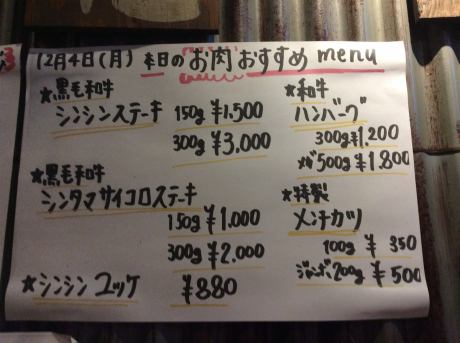 12月4日(月) 本日のお肉おすすめmenu
★黒毛和牛
シンシンステーキ 150g ¥1,500
300g ¥3,000
★黒毛和牛
シンタマサイコロステーキ
150g ¥1,000
300g ¥2,000
★シンシンユッケ ¥880
★和牛
ハンバーグ
300g ¥1,200
メガ500g ¥1,800
★特製
メンチカツ
100g ¥350
ジャンボ200g ¥500